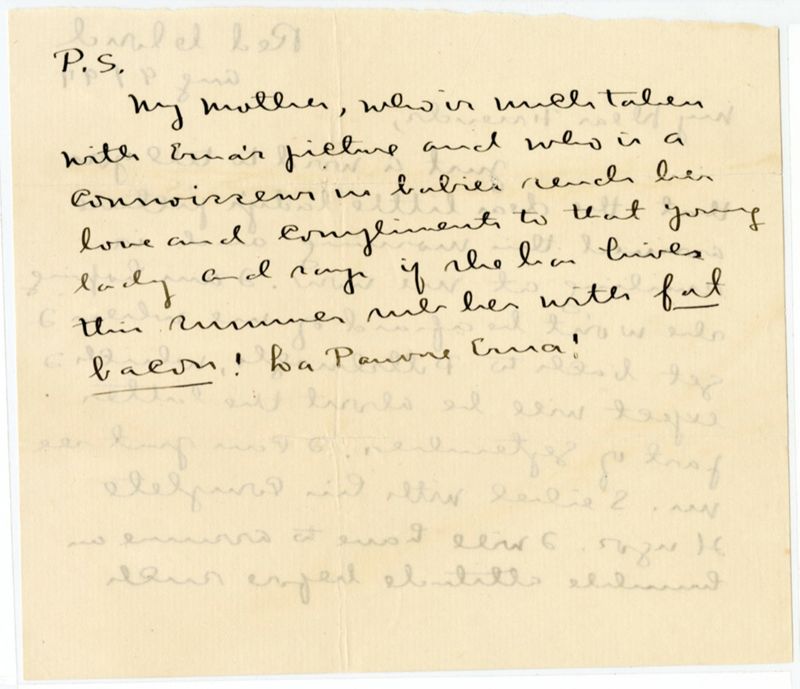 P.S.
My mother, who is much taken
with Erna's picture and who is a
connoisseur in babies sends her
love and compliments to that young
lady and says if she has hives
this summer rub her with fat
bacon! La Pauvre Erna!